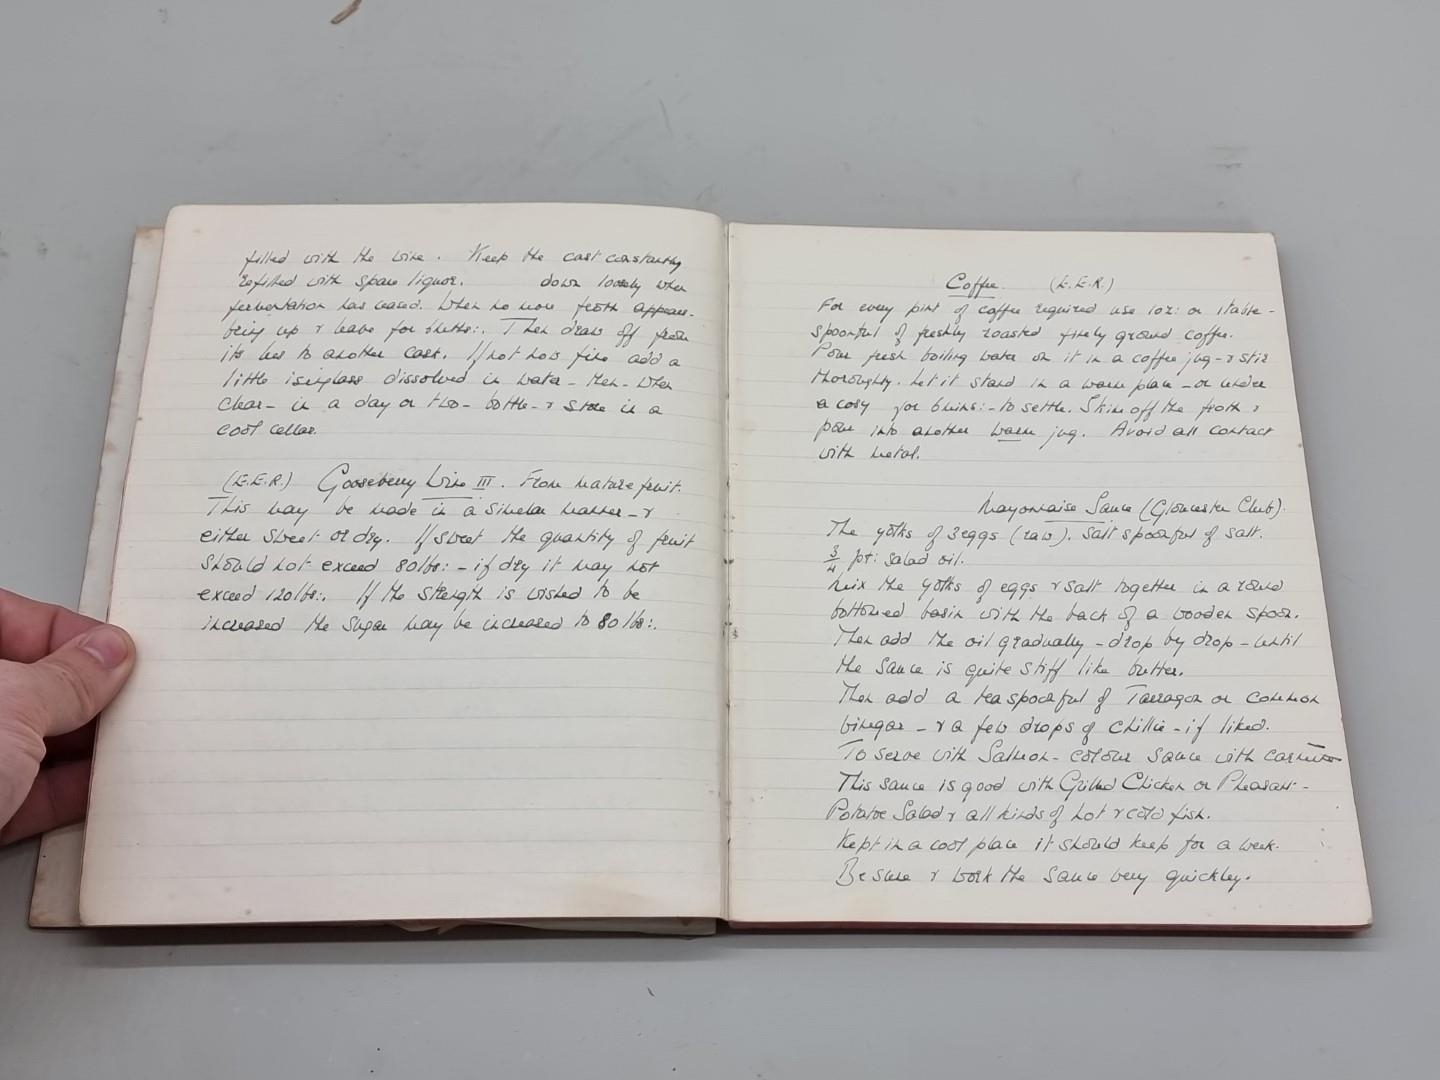 filled with the wine. Keep the cast constantly
refilled with spare liquor. down loosely when
fermentation has ceased. When no more froth appears-
bung up & leave for
Then draw off from
its lees to another cask. If not now fine add a
little isinglass dissolved in water - then - when
clear - in a day or two - bottle - & store in a
cool cellar.
(E.E.R.) Gooseberry Wine III. From mature fruit.
This may be made in a similar manner - &
either sweet or dry. If sweet the quantity of fruit
should not exceed 80lbs: - if dry it may not
exceed 120lbs:. If the strength is wished to be
increased the sugar may be increased to 80 lbs:.
Coffee. (E.E.R.)
For every pint of coffee required use 1oz: or 1table-
spoonful of freshly roasted finely ground coffee.
Pour fresh boiling water on it in a coffee jug - & stir
thoroughly. Let it stand in a warm place - or under
a cosy for 6mins: - to settle. Skim off the froth &
pour into another warm jug. Avoid all contact
with metal.
Mayonnaise Sauce (Gloucester Club).
The yolks of 3eggs (raw). Salt spoonful of salt.
3/4 pt: salad oil.
Mix the yolks of eggs & salt together in a round
bottomed basin with the back of a wooden spoon.
Then add the oil gradually - drop by drop - until
the sauce is quite stiff like butter.
Then add a teaspoonful of Tarragon or common
vinegar - & a few drops of chillie - if liked.
To serve with Salmon - colour sauce with carmine
This sauce is good with Grilled Chicken or Pheasant -
Potatoe Salad & all kinds of hot & cold fish.
Kept in a cool place it should keep for a week.
Be sure & work the sauce very quickley.